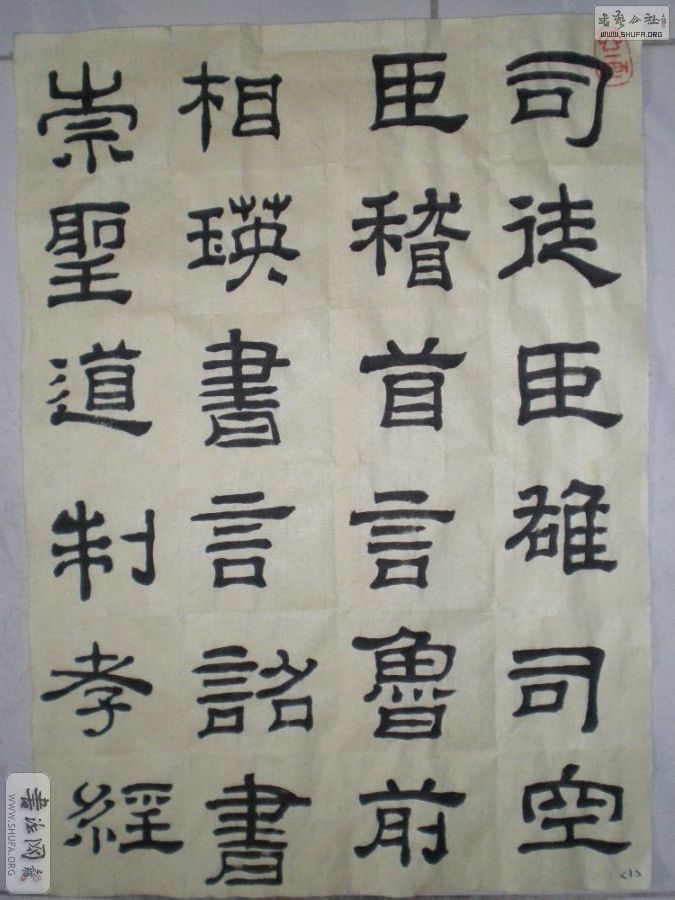 司徒臣雄司空
臣稽首言魯前
相瑛書言詔書
崇聖道制孝經
<1>
书艺公社
WWW.SHUFA.ORG
WWW.SHUFA.ORG